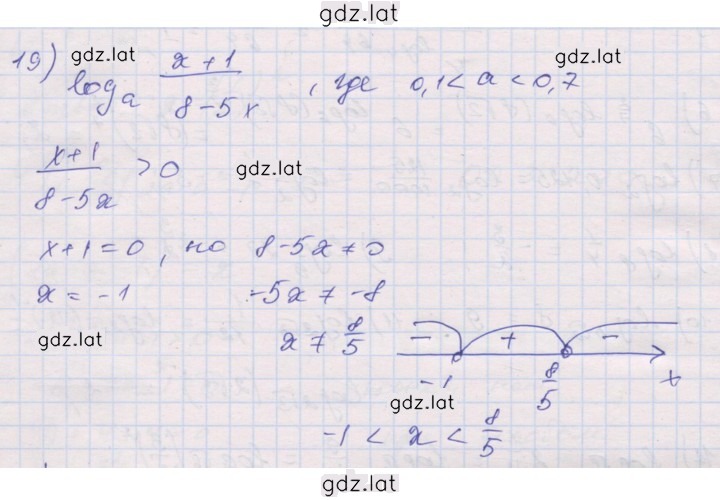 gdz.lat
19) gdz.lat gdz.lat
log_a (x+1)/(8-5x), где 0,1 < a < 0,7
(x+1)/(8-5x) > 0 gdz.lat
x+1=0, но 8-5x≠0
x = -1 -5x ≠ -8
gdz.lat x ≠ 8/5 - + -
-1 8/5 x
gdz.lat
-1 < x < 8/5
gdz.lat